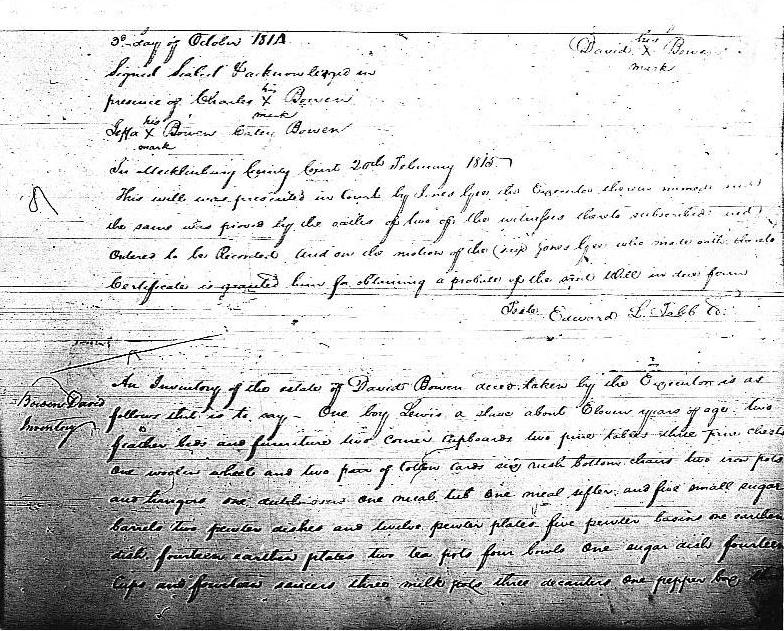 3d day of October 1814
David his X Bowen
mark
Signed Sealed & acknowledged in
presence of Charles his X Bowen
mark
his
Jeffa X Bowen Caley Bowen
mark
In Mecklenburg County Court 20th February 1815
This will was presented in Court by Jones Gee the Executor therein named and
the same was proved by the oaths of two of the witnesses thereto subscribed and
Ordered to be Recorded And on the motion of the said Jones Gee who made oath thereto
Certificate is granted him for obtaining a probate of the said Will in due form
Teste Edward L. Tabb
Bowen David
Inventory
An Inventory of the estate of David Bowen deced. taken by the Executor is as
follows that is to say - One boy Lewis a slave about Eleven years of age two
feather beds and furniture two corner cupboards two pine tables three pine chests
one woolen wheel and two pair of Cotton cards six rush bottom chairs two iron pots
and hangers one dutch oven One meal tub One meal sifter and five small sugar
barrels two pewter dishes and twelve pewter plates five pewter basins one earthen
dish fourteen earthen plates two tea pots four bowls One sugar dish fourteen
Cups and fourteen saucers three milk pots three decanters One pepper box